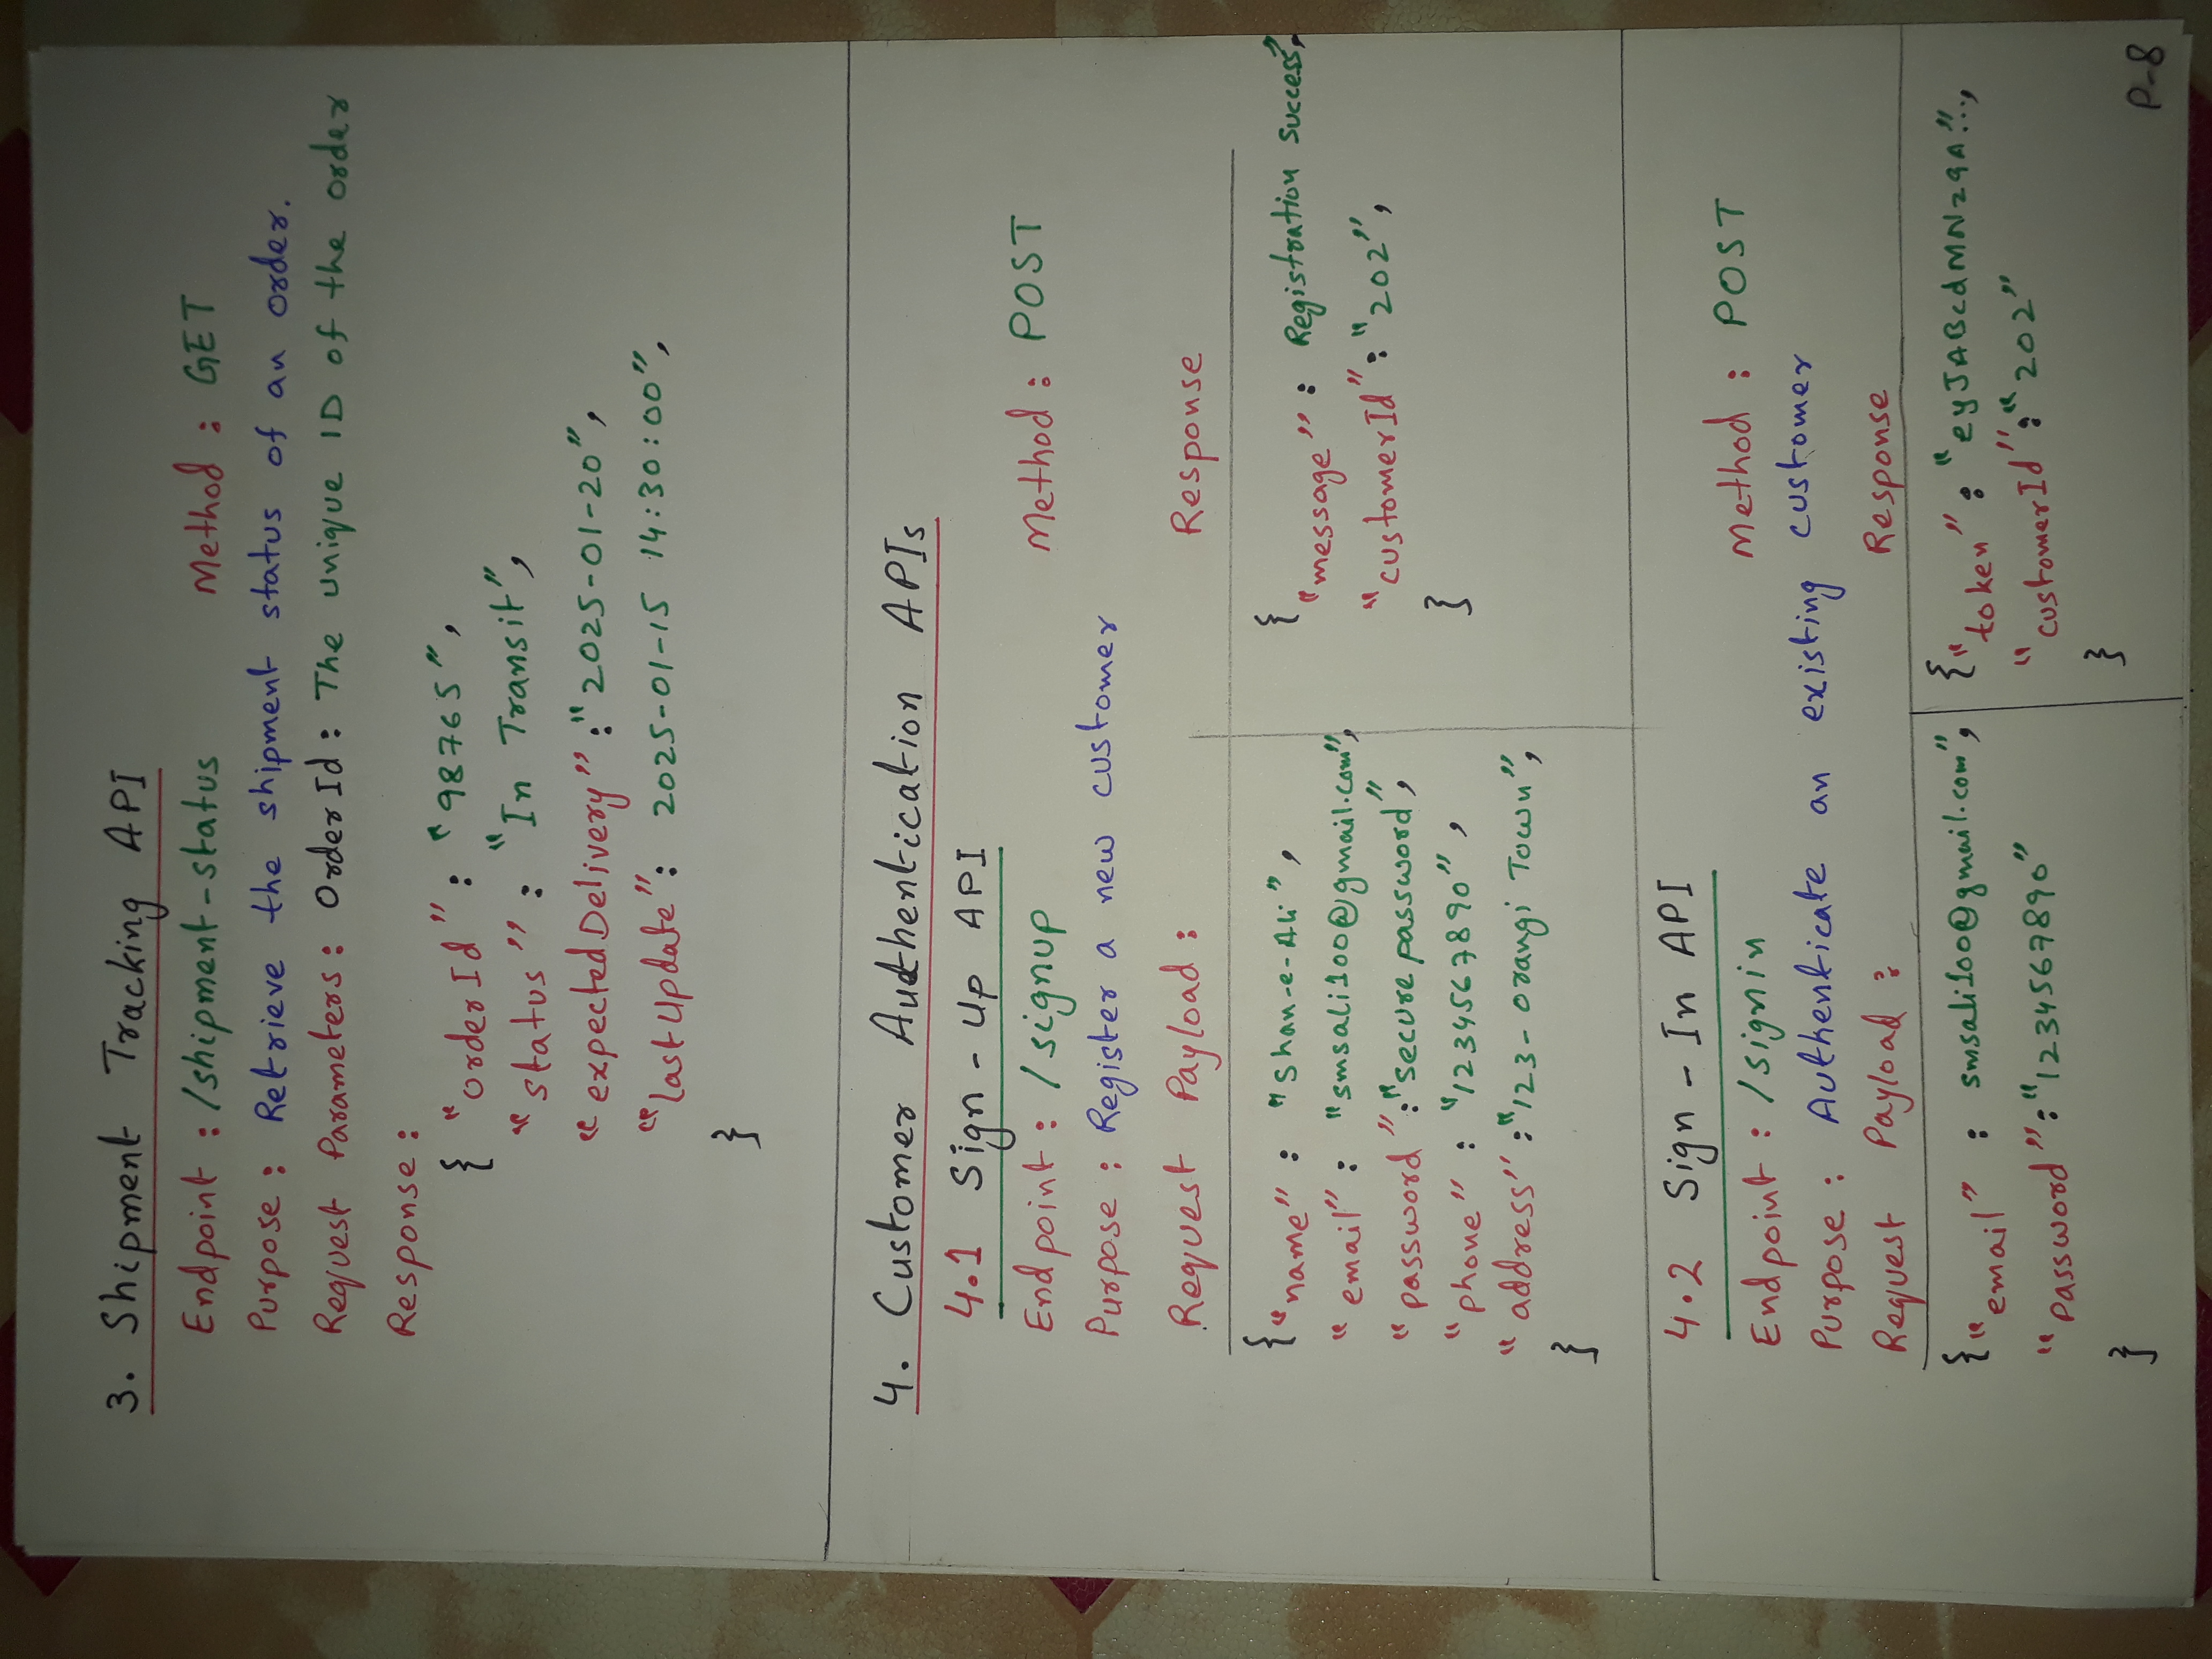 3. Shipment Tracking API
Endpoint : /shipment-status Method : GET
Purpose : Retrieve the shipment status of an order.
Request Parameters : OrderId : The unique ID of the order
Response :
{ "orderId" : "98765",
"status" : "In Transit",
"expectedDelivery" : "2025-01-20",
"lastUpdate" : 2025-01-15 14:30:00",
}
4. Customer Authentication APIs
4.1 Sign-Up API
Endpoint : /signup Method : POST
Purpose : Register a new customer
Request Payload : Response
{ "name" : "Shan-e-Ali", {
"message" : Registration Success",
"email" : "smsali100@gmail.com",
"customerId" : "202",
"password" : "secure password",
"phone" : "1234567890", }
"address" : "123-Orangi Town",
}
4.2 Sign-In API
Endpoint : /signin Method : POST
Purpose : Authenticate an existing customer
Request Payload : Response
{ "email" : smsali100@gmail.com", { "token" : "eyJABcdMNz9A!!..,
"password" : "1234567890" "customerId" : "202"
} }
P-8